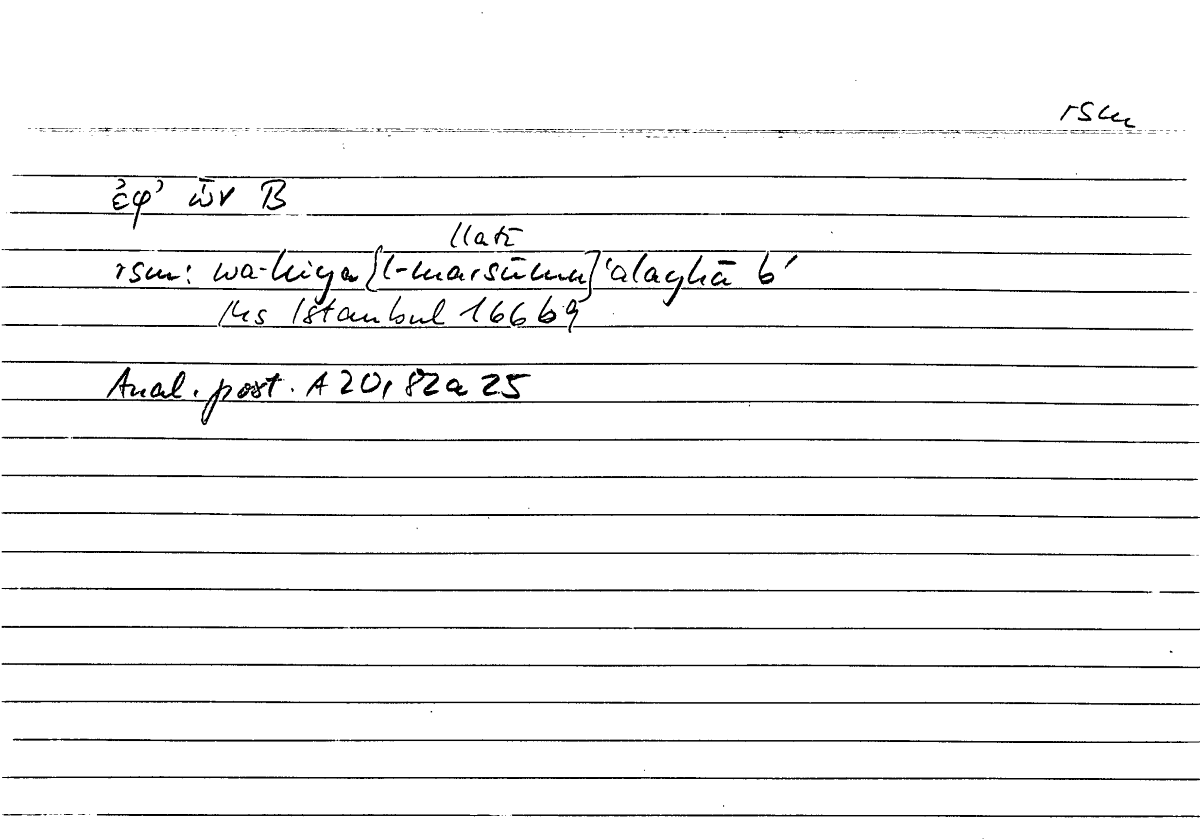 rsm
ἐφ' ὧν B
llatī
rsm: wa-hiya {l-marsūmu} ʿalayhā b'
Hs Istanbul 166 b 9
Anal. post. A 20, 82a 25